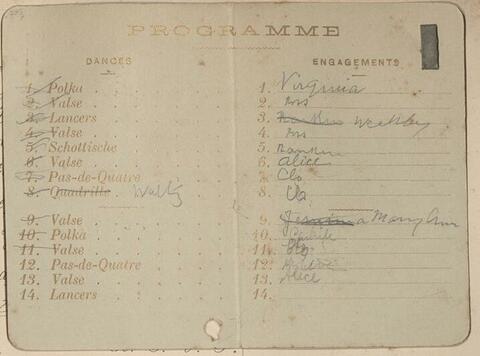 PROGRAMME
DANCES
1. Polka
2. Valse
3. Lancers
4. Valse
5. Schottische
6. Valse
7. Pas-de-Quatre
8. Quadrille Waltz
9. Valse
10. Polka
11. Valse
12. Pas-de-Quatre
13. Valse
14. Lancers
ENGAGEMENTS
1. Virginia
2.
3. Weekley
4.
5.
6. Alice
7. Clo
8. Clo
9. Mary Ann
10.
11. Clo
12.
13. Alice
14.